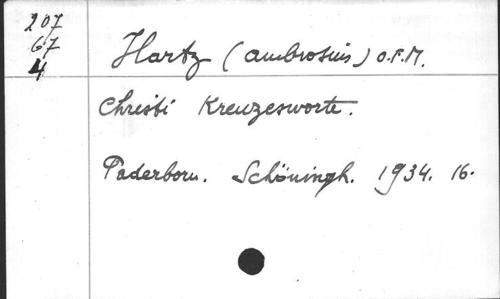 207
67
4
Hartz (Ambrosius) O.F.M.
Christi Kreuzesworte.
Paderborn. Schöningh. 1934. 16.